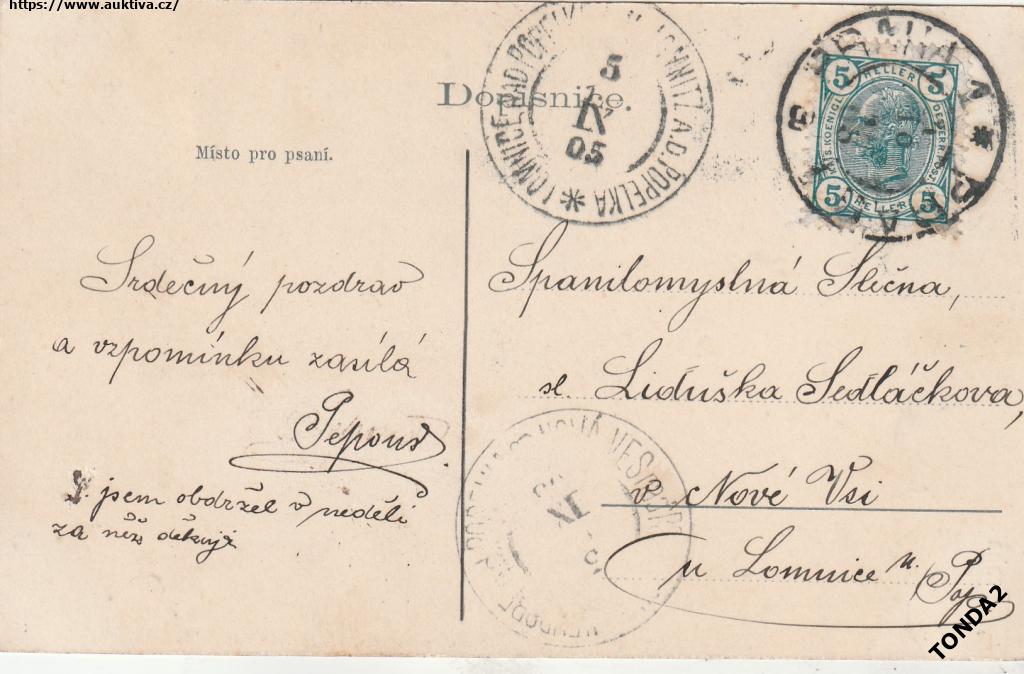 https://www.auktiva.cz/
Dopisnice.
Místo pro psaní.
LOMNICE NAD POPELKOU LOMNITZ A.D. POPELKA
5
IX
05
5 HELLER 5
5 HELLER 5
Srdečný pozdrav
a vzpomínku zasílá
Pepous
jsem obdržel v neděli
za něž děkuji
Spanilomyslná Slečna,
sl. Liduška Sedláčkova,
v Nové Vsi
u Lomnice n. Pop.
TONDA2